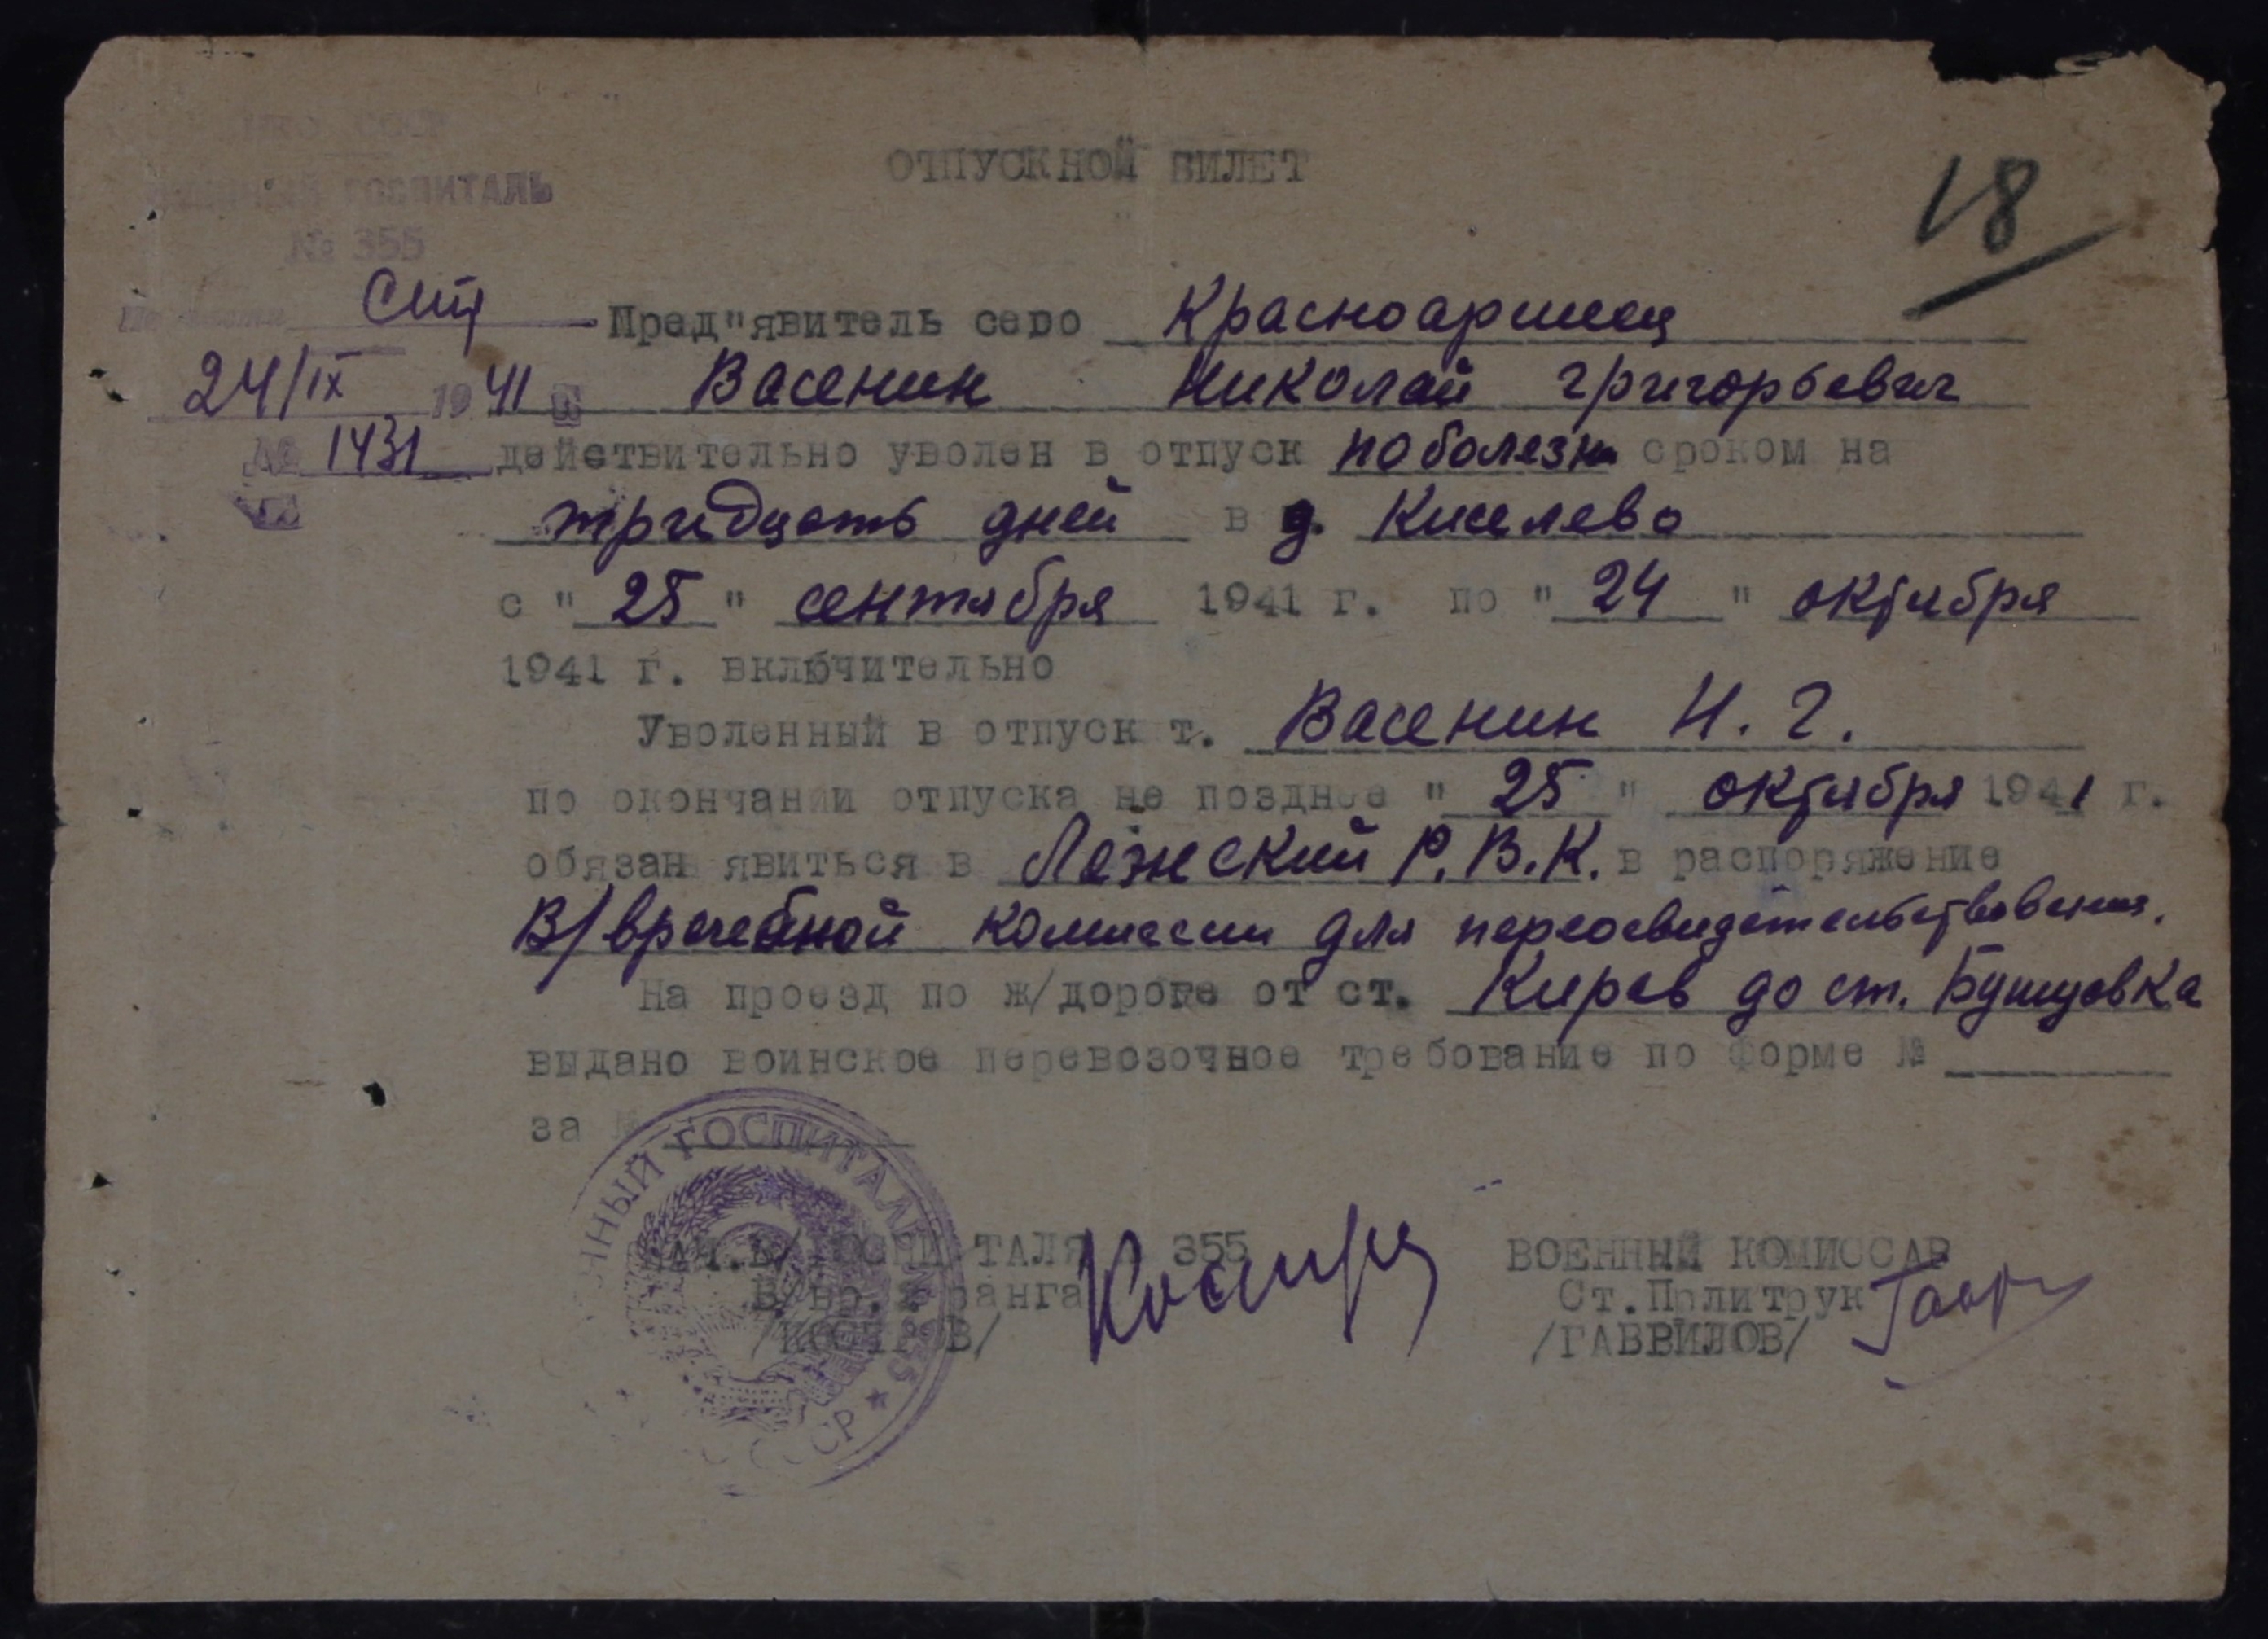 ОТПУСКНОЙ БИЛЕТ
18
ГОСПИТАЛЬ
№ 355
Пред"явитель сего Красноармеец
24/IX 1941 Васенин Николай Григорьевич
№ 1431 действительно уволен в отпуск по болезни сроком на
тридцать дней в д. Киселево
с " 25 " сентября 1941 г. по " 24 " октября
1941 г. включительно
Уволенный в отпуск т. Васенин Н. Г.
по окончании отпуска не позднее " 25 " октября 1941 г.
обязан явиться в Р.В.К. в распоряжение
В/врачебной комиссии для переосвидетельствования.
На проезд по ж/дороге от ст. Киров до ст.
выдано воинское перевозочное требование по форме №
за №
ГОСПИТАЛЬ № 355 ★ СССР
НАЧ.В/ГОСПИТАЛЯ 355
В/вр. ранга
/КОСТРОВ/
ВОЕННЫЙ КОМИССАР
Ст.Политрук
/ГАВРИЛОВ/